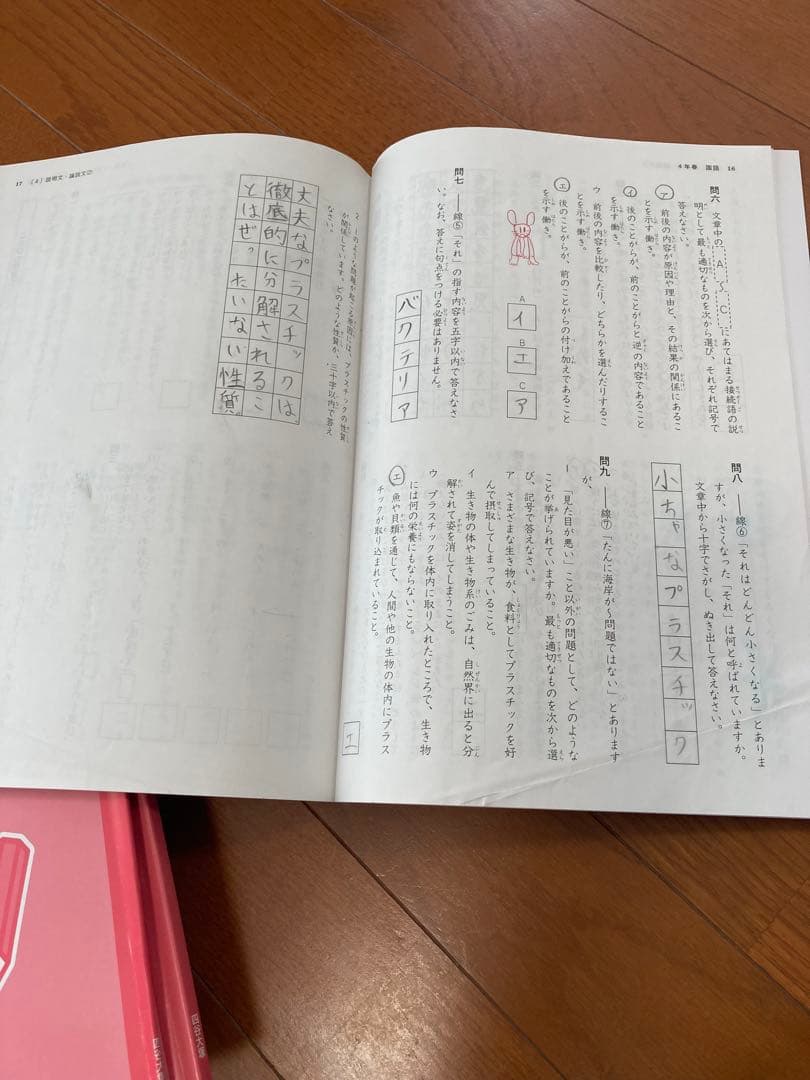 4年春 国語 16
問六 文章中の A 〜 C にあてはまる接続語の説
明として最も適切なものを次から選び、それぞれ記号で
答えなさい。
ア 前後の内容が原因や理由と、その結果の関係にあるこ
とを示す働き。
イ 後のことがらが、前のことがらと逆の内容であること
を示す働き。
ウ 前後の内容を比較したり、どちらかを選んだりするこ
とを示す働き。
エ 後のことがらが、前のことがらの付け加えであること
を示す働き。
A イ
B エ
C ア
問七 ――線⑤「それ」の指す内容を五字以内で答えなさ
い。なお、答えに句点をつける必要はありません。
バクテリア
問八 ――線⑥「それはどんどん小さくなる」とありま
すが、小さくなった「それ」は何と呼ばれていますか。
文章中から十字でさがし、ぬき出して答えなさい。
小ちゃなプラスチック
問九 ――線⑦「たんに海岸が〜問題ではない」とあります
が、
1 「見た目が悪い」こと以外の問題として、どのような
ことが挙げられていますか。最も適切なものを次から選
び、記号で答えなさい。
ア さまざまな生き物が、食料としてプラスチックを好
んで摂取してしまっていること。
イ 生き物の体や生き物系のごみは、自然界に出ると分
解されて姿を消してしまうこと。
ウ プラスチックを体内に取り入れたところで、生き物
には何の栄養にもならないこと。
エ 魚や貝類を通じて、人間や他の生物の体内にプラス
チックが取り込まれていること。
エ
17 (4)説明文・論説文②
2 1のような問題が起こる原因には、プラスチックの性質
が関係しています。どのような性質か、三十字以内で答え
なさい。
丈夫なプラスチックは、
徹底的に分解されるこ
とはぜったいない性質。
四谷大塚